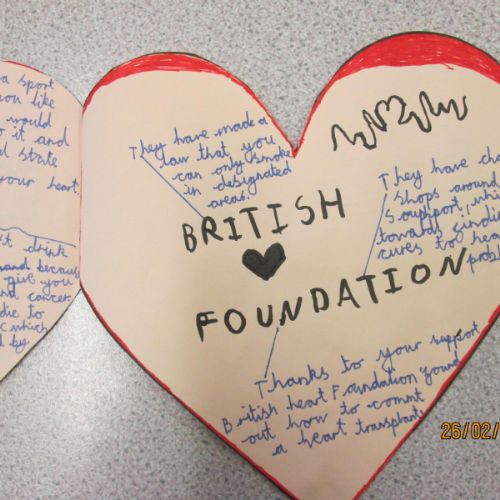 a sport
you like
would
it and
state
your heart.
drink
and because
give you
and cancer.
die to
which
by
They have made a
law that you
can only smoke
in designated
areas.
BRITISH
FOUNDATION
They have
Shops around
Support,
towards
cures to
Thanks to your support
British heart Foundation found
out how to commt
a heart transplant.
26/02/